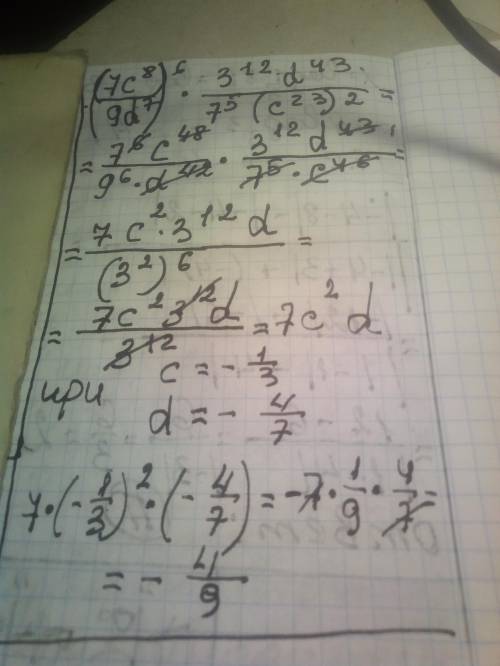 (7c⁸/9d⁷)⁶ · 3¹²d⁴³/7⁵(c²³)² =
= 7⁶c⁴⁸/9⁶·d⁴² · 3¹²d⁴³/7⁵·c⁴⁶ =
= 7c²·3¹²d/(3²)⁶ =
= 7c²3¹²d/3¹² = 7c²d
при c = -1/3
d = -4/7
7·(-1/3)²·(-4/7) = -7·1/9·4/7 =
= -4/9